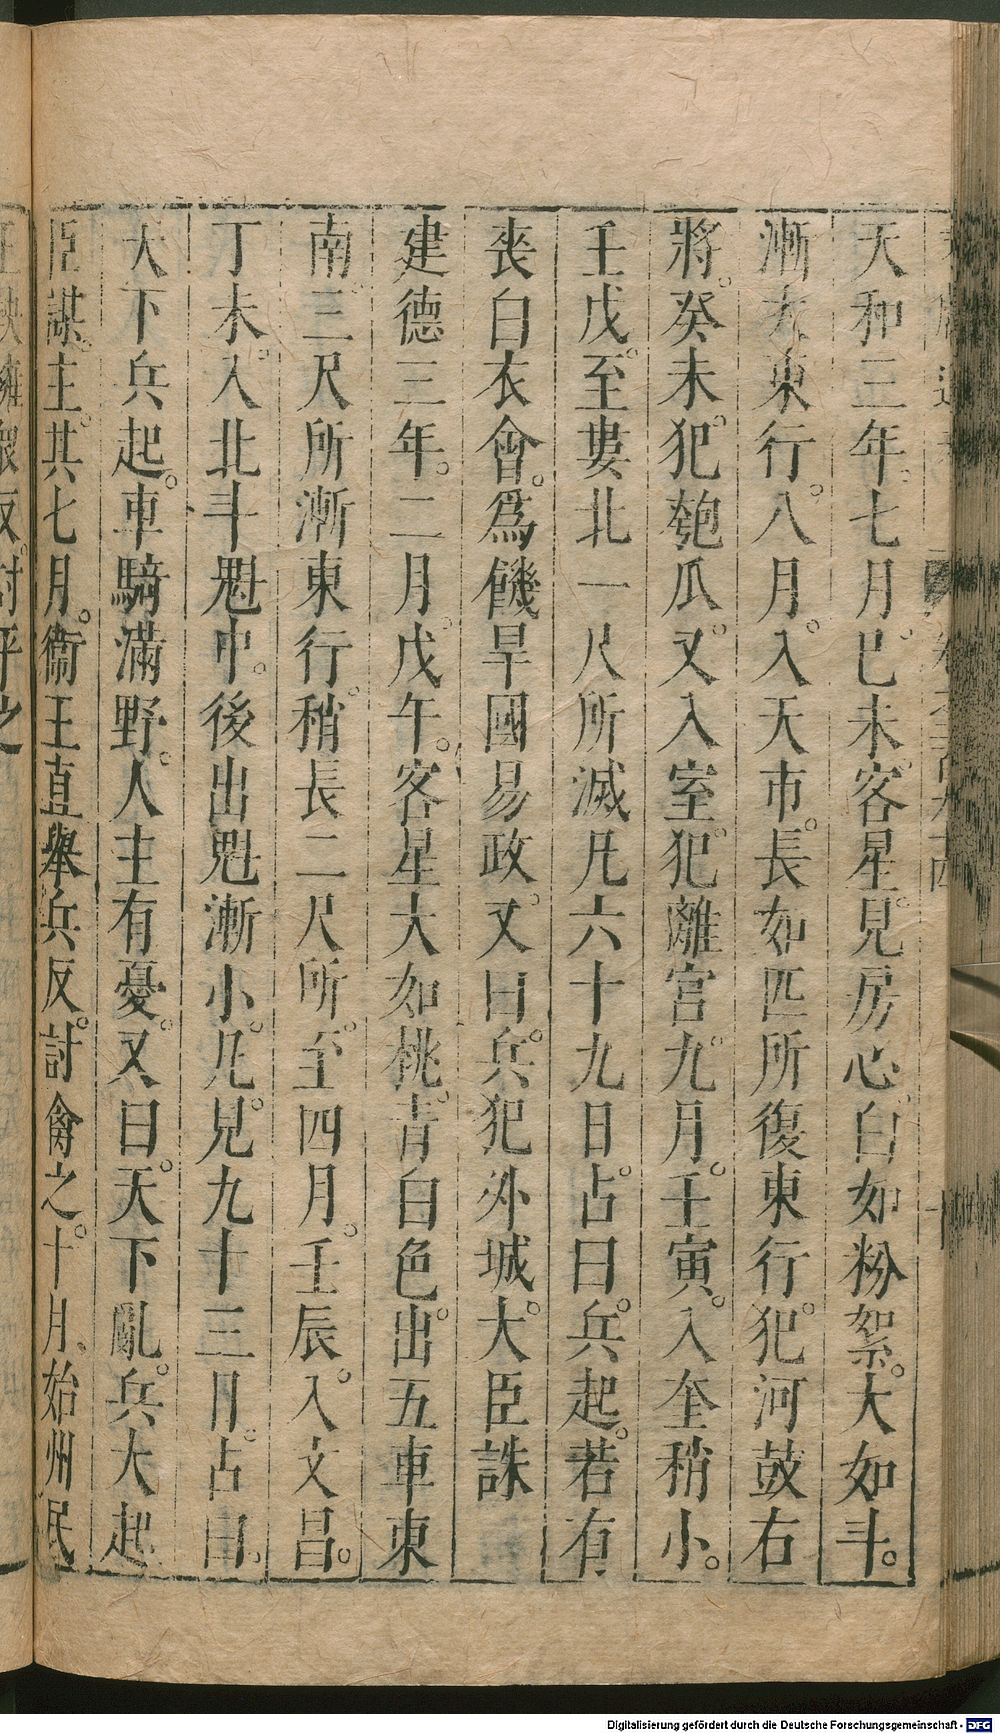 天和三年七月。己未。客星見房心。白如粉絮。大如斗。
漸大東行。八月。入天市。長如匹所復東行。犯河鼓右
將。癸未。犯匏瓜。又入室。犯離宮。九月。壬寅。入奎稍小。
壬戌。至婁北一尺所滅。凡六十九日。占曰。兵起。若有
喪白衣會。爲饑旱國易政。又曰。兵犯外城。大臣誅
建德三年。二月。戊午。客星大如桃。青白色。出五車東
南三尺所漸東行。稍長二尺所。至四月。壬辰。入文昌。
丁未。入北斗魁中。後出魁漸小。凡見九十三日。占曰。
天下兵起。車騎滿野。人主有憂。又曰。天下亂。兵大起
臣謀主。其七月。衞王直舉兵反。討禽之。十月。始州民
王鞅擁衆反。討平之
Digitalisierung gefördert durch die Deutsche Forschungsgemeinschaft - DFG